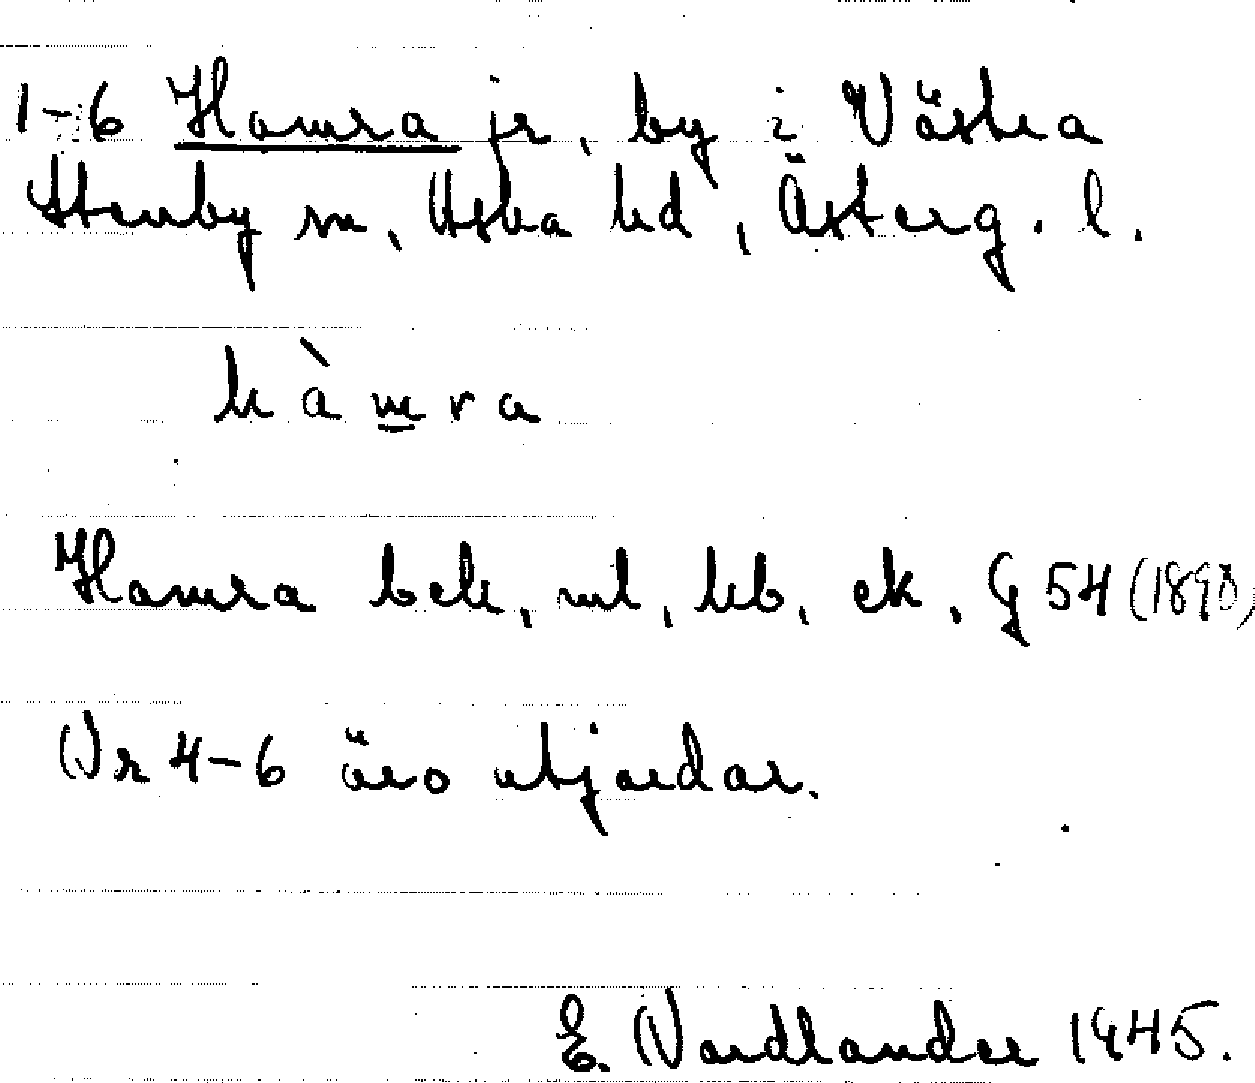 1-6 Hamra jr, by i Västra
Stenby sn, Aska hd, Österg. l.
hàmra
Hamra bck, ml, hb, ek, G 54 (1890)
Nr 4-6 äro utjordar.
E. Nordlander 1945.